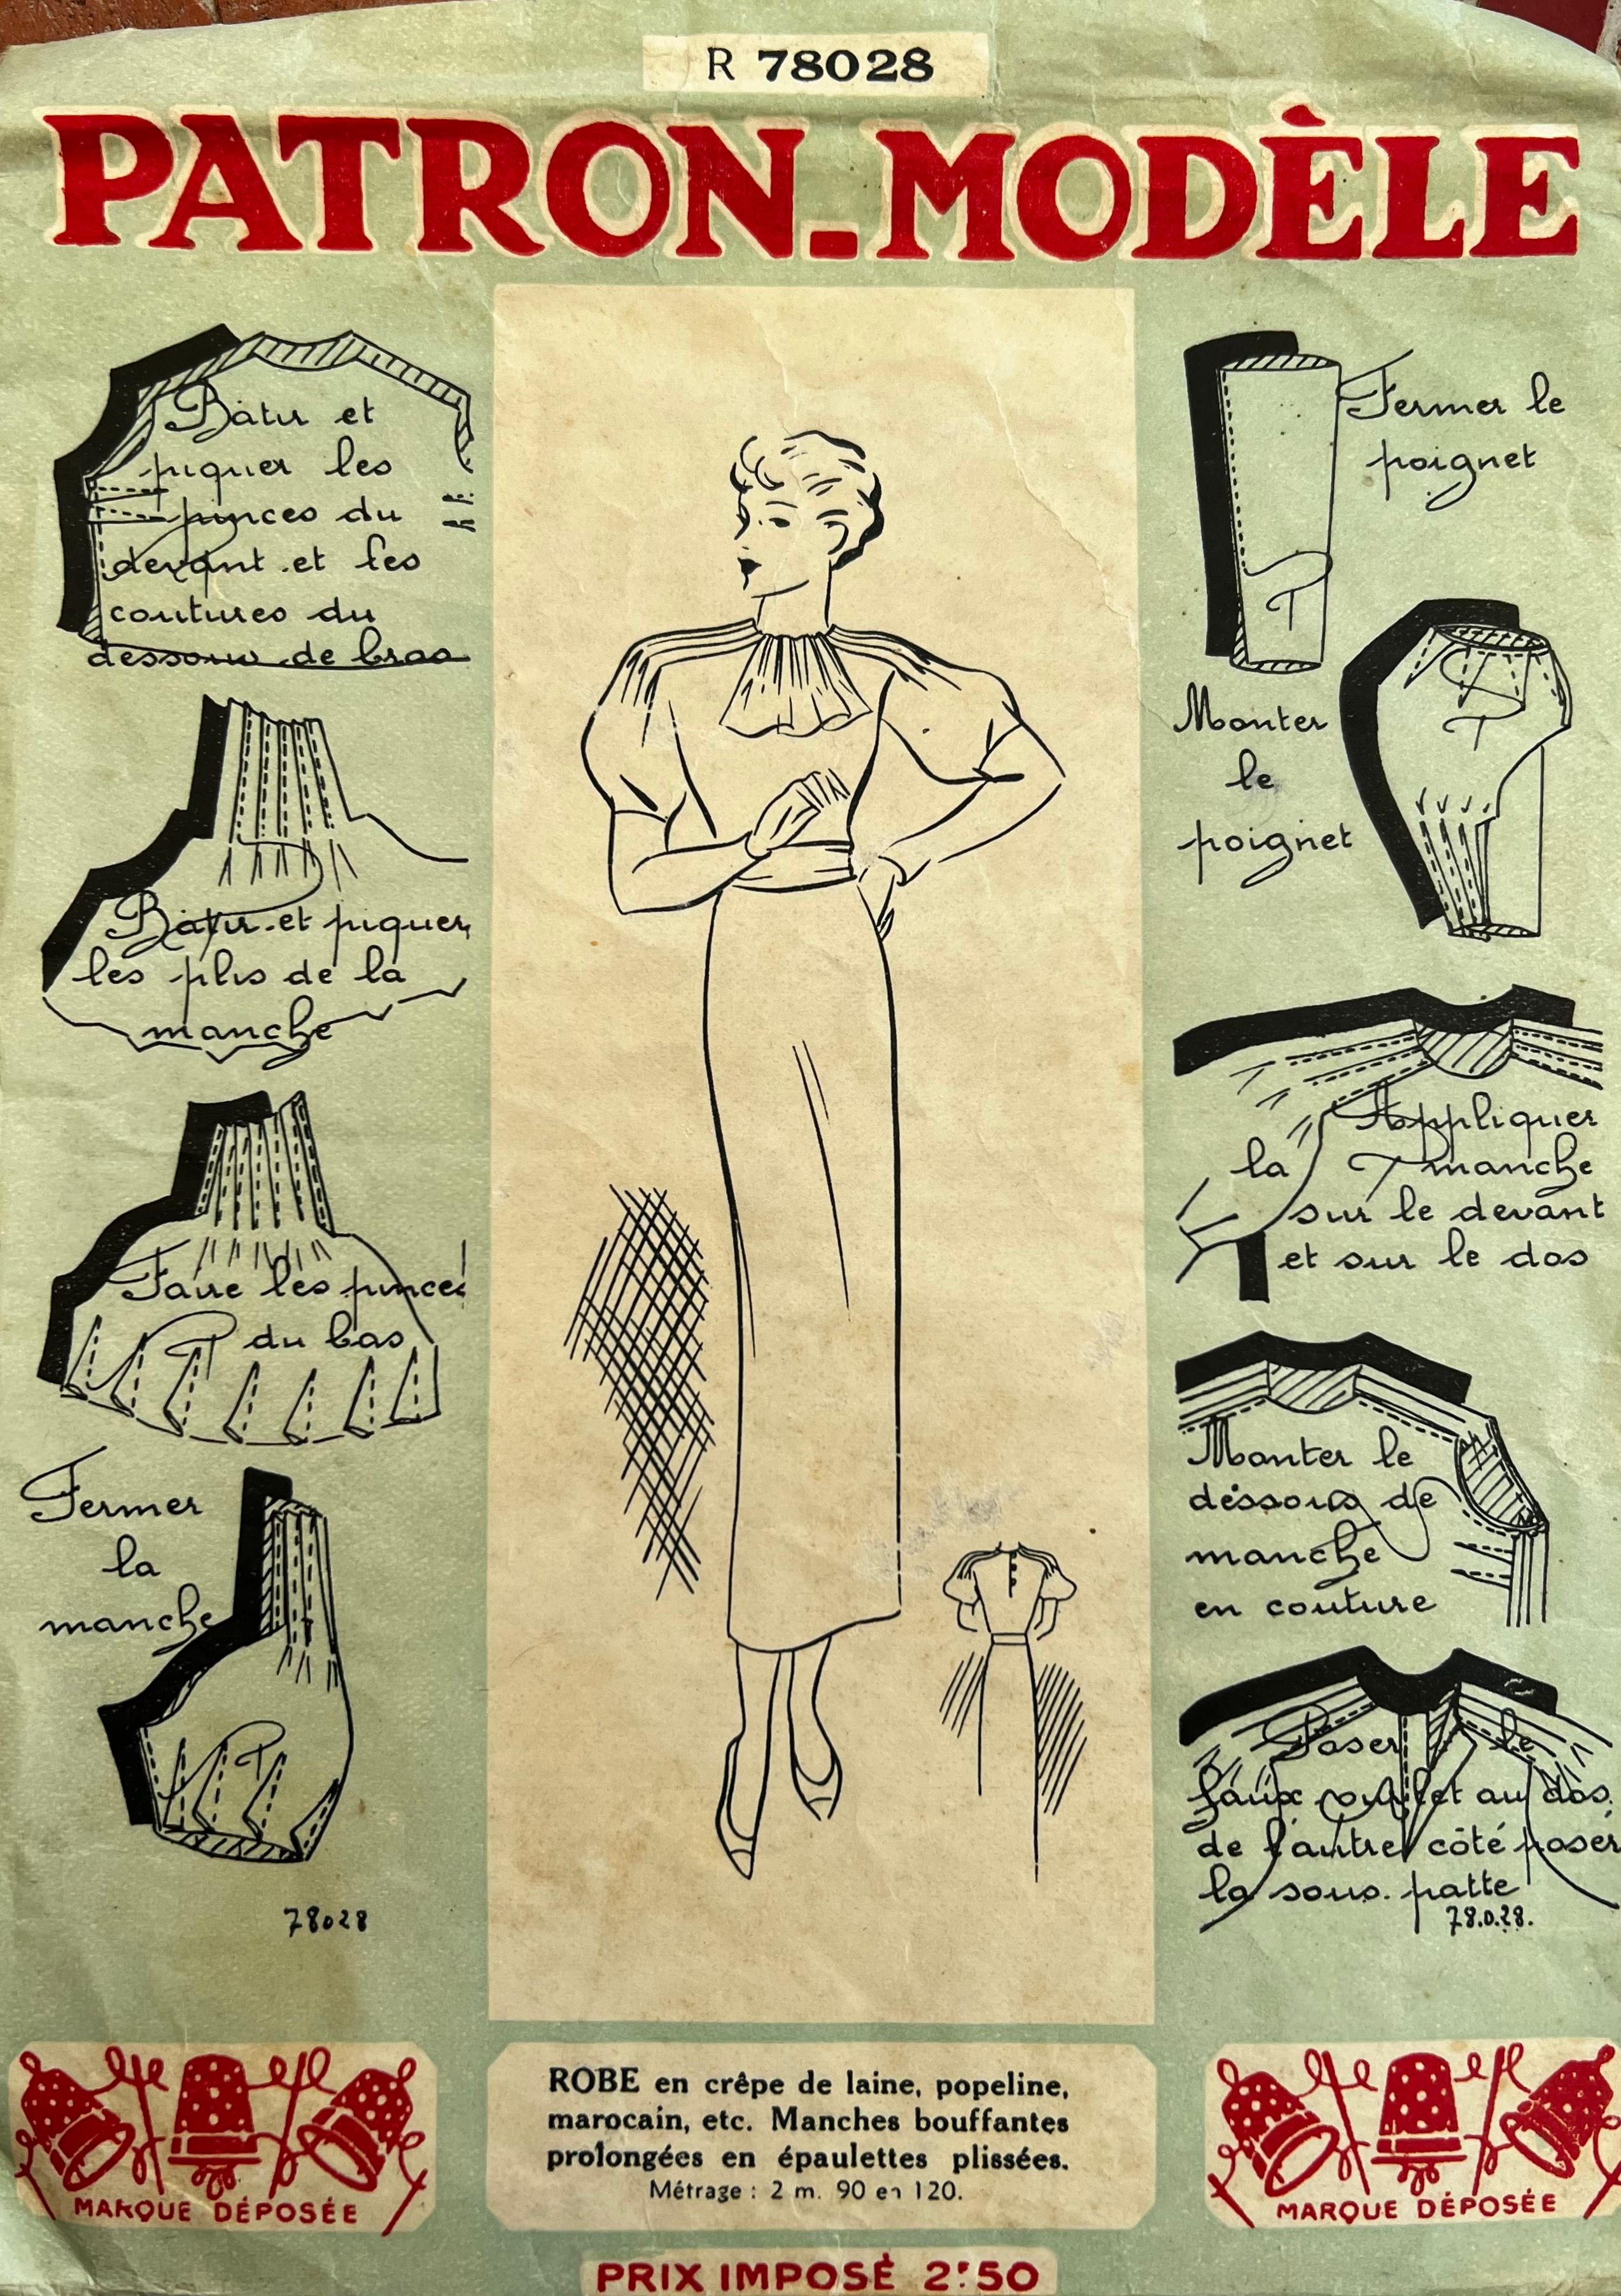 R 78028
PATRON-MODÈLE
Bâtir et
piquer les
pinces du
devant et les
coutures du
dessous de bras
Bâtir et piquer
les plis de la
manche
Faire les pinces
du bas
Fermer
la
manche
78028
Fermer le
poignet
Monter
le
poignet
Appliquer
la manche
sur le devant
et sur le dos
Monter le
dessous de
manche
en couture
Poser le
faux ourlet au dos.
de l'autre côté poser
la sous-patte
78.0.28.
MARQUE DÉPOSÉE
ROBE en crêpe de laine, popeline,
marocain, etc. Manches bouffantes
prolongées en épaulettes plissées.
Métrage : 2 m. 90 en 120.
MARQUE DÉPOSÉE
PRIX IMPOSÉ 2f50